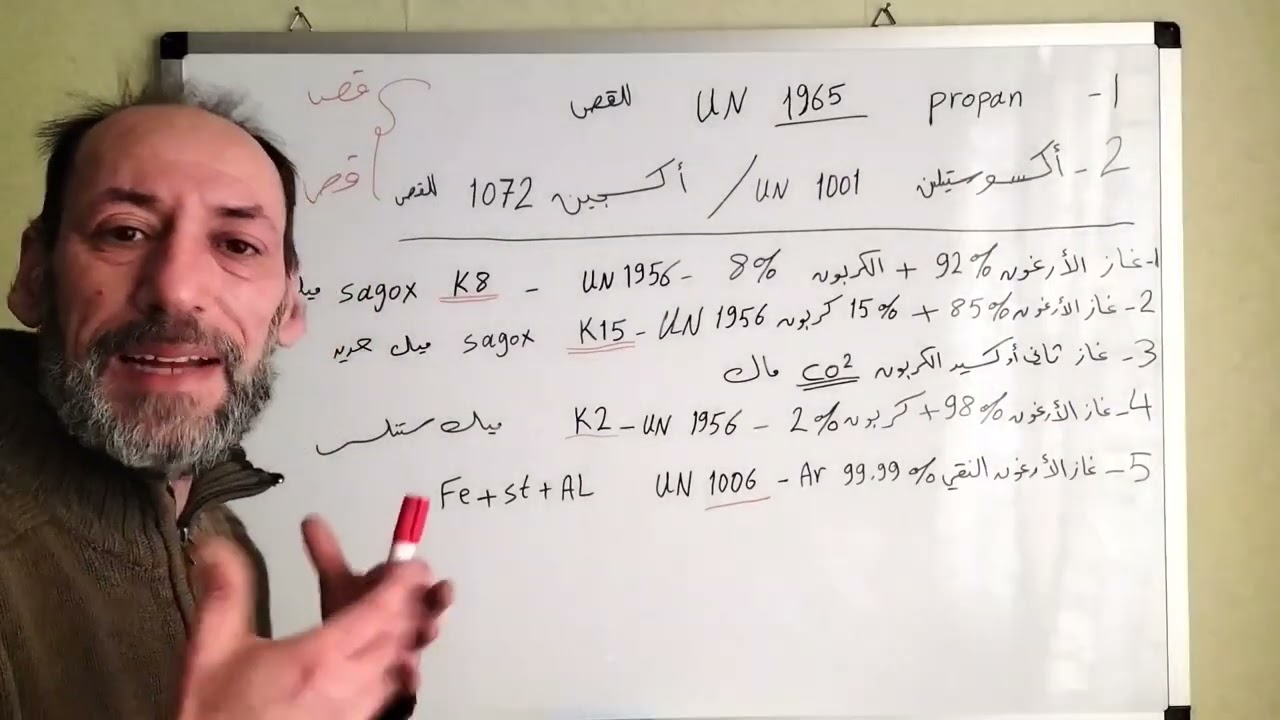 1- propan UN 1965 للقص
قص
2- أكسوستيلن UN 1001 / أكسجين 1072 للقص
قص
1- غاز الأرغون 92% + الكربون 8% - UN 1956 - K8 sagox
2- غاز الأرغون 85% + 15% كربون UN 1956 - K15 sagox ميك حديد
3- غاز ثاني أوكسيد الكربون CO2 ماك
4- غاز الأرغون 98% + كربون 2% - UN 1956 - K2 ميك ستنلس
5- غاز الأرغون النقي 99.99% Ar - UN 1006 Fe + st + AL